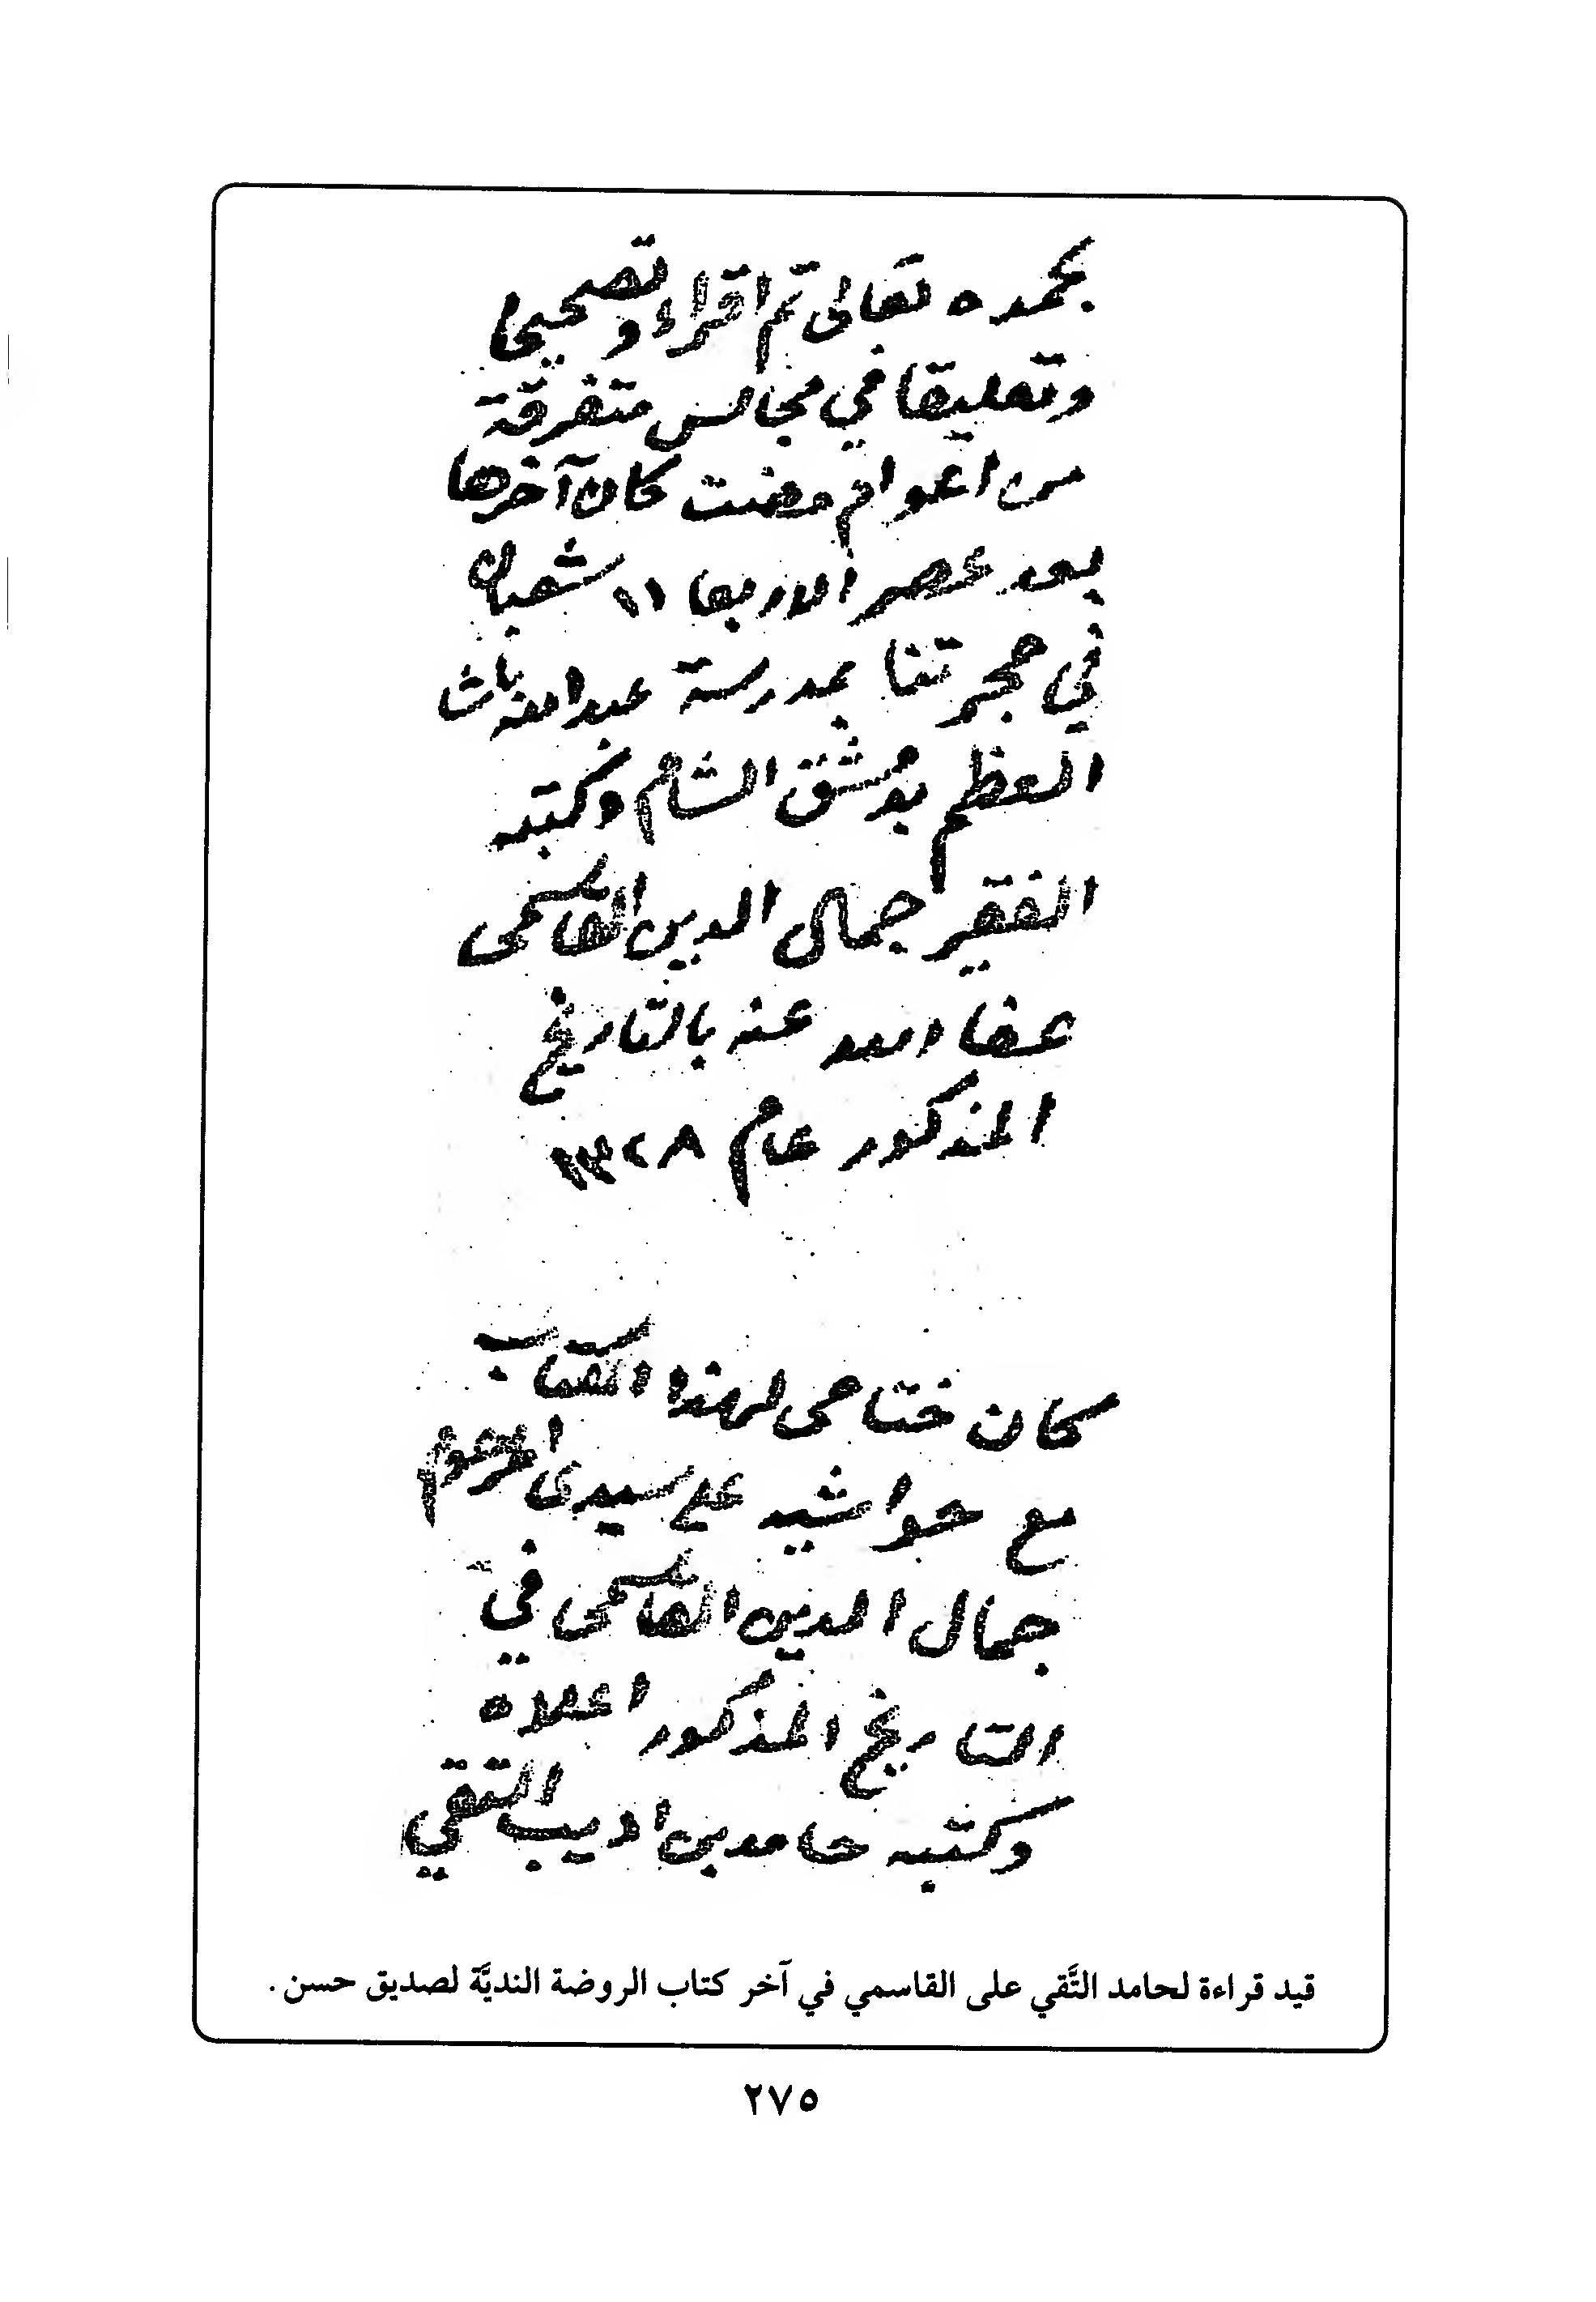 بحمده تعالى تم اقراء وتصحيحا
وتعليقا في مجالس متفرقة
من اعوام مضت كان آخرها
بعد عصر الاربعا ١١ شعبان
في حجرتنا بمدرسة عبد الله باشا
العظم بدمشق الشام وكتبه
الفقير جمال الدين القاسمى
عفا الله عنه بالتاريخ
المذكور عام ١٣٢٨
كان ختامى لهذا الكتاب
مع حواشيه على سيدى المرحوم
جمال الدين القاسمى في
التاريخ المذكور اعلاه
وكتبه حامد بن اديب التقي
قيد قراءة لحامد التَّقي على القاسمي في آخر كتاب الروضة النديَّة لصديق حسن .
٢٧٥